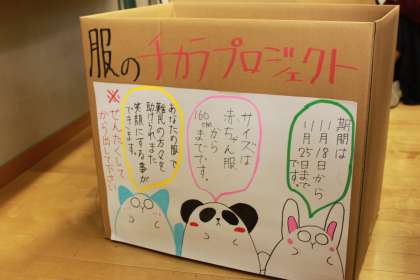 服のチカラプロジェクト
期間は
11月18日から
11月25日まで
です。
サイズは
赤ちゃん服
から
160cm
までです。
あなたの服で
難民の方々を
助けられました
笑顔にする事が
できます。
※ぜんたくして
から出して下さい